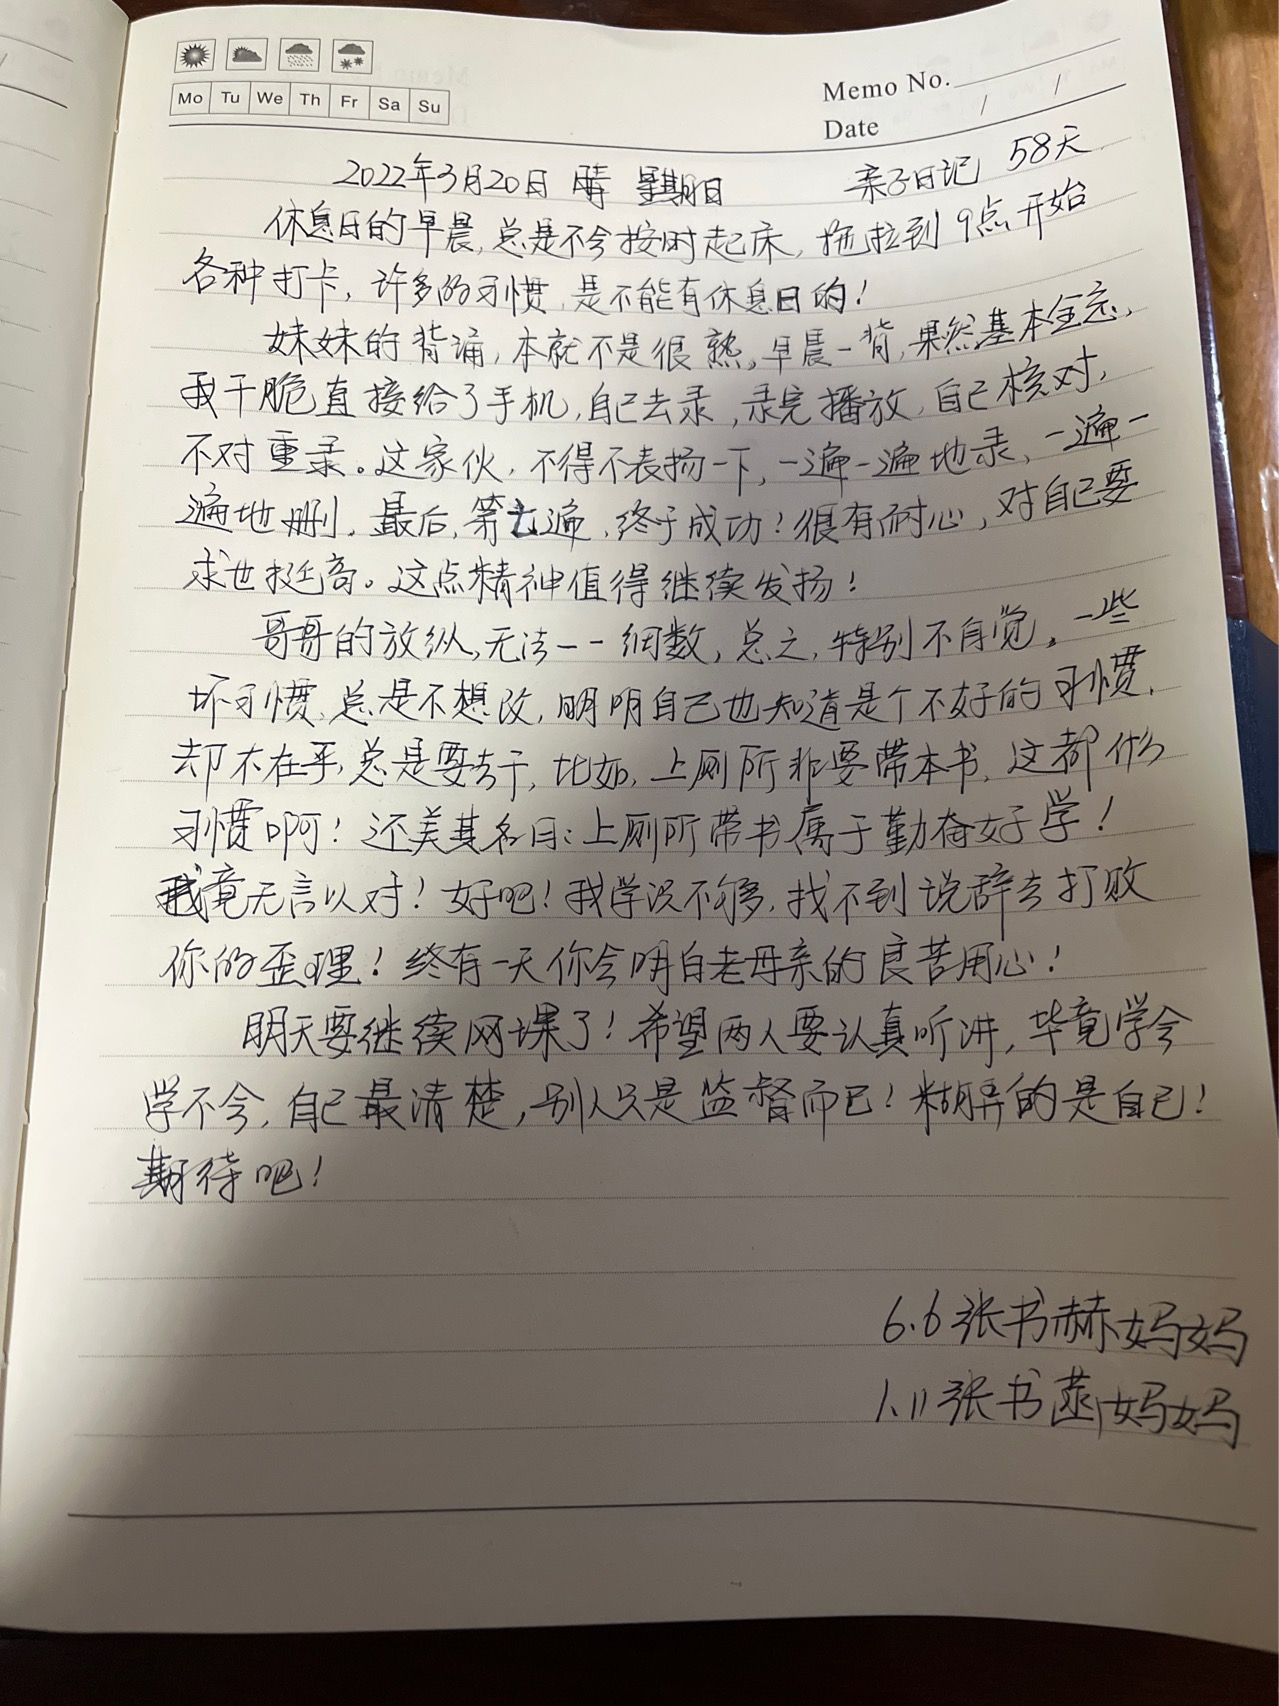 Mo Tu We Th Fr Sa Su
Memo No.
Date / /
2022年3月20日 晴 星期日 亲子日记 58天
休息日的早晨,总是不会按时起床,拖拉到9点开始
各种打卡,许多的习惯,是不能有休息日的!
妹妹的背诵,本就不是很熟,早晨一背,果然基本全忘,
我干脆直接给了手机,自己去录,录完播放,自己核对,
不对重录。这家伙,不得不表扬一下,一遍一遍地录,一遍一
遍地删,最后,第七遍,终于成功!很有耐心,对自己要
求也挺高。这点精神值得继续发扬!
哥哥的放纵,无法一一细数,总之,特别不自觉。一些
坏习惯,总是不想改,明明自己也知道是个不好的习惯,
却不在乎,总是要去干,比如,上厕所非要带本书,这都什么
习惯啊!还美其名曰:上厕所带书属于勤奋好学!
我竟无言以对!好吧!我学识不够,找不到说辞去打败
你的歪理!终有一天你会明白老母亲的良苦用心!
明天要继续网课了!希望两人要认真听讲,毕竟学会
学不会,自己最清楚,别人只是监督而已!糊弄的是自己!
期待吧!
6.6张书赫妈妈
1.11张书菡妈妈